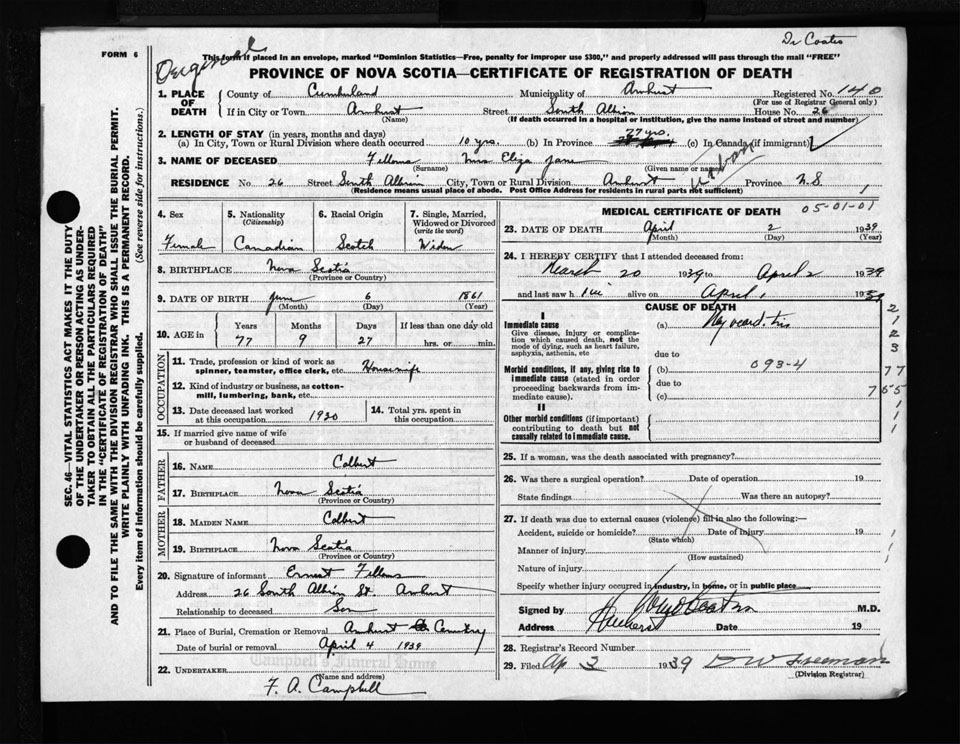 Dr Coates
FORM 6
Original
This form if placed in an envelope, marked "Dominion Statistics—Free, penalty for improper use $300," and properly addressed will pass through the mail "FREE"
PROVINCE OF NOVA SCOTIA—CERTIFICATE OF REGISTRATION OF DEATH
1. PLACE OF DEATH County of Cumberland Municipality of Amherst Registered No. 140
(For use of Registrar General only)
If in City or Town Amherst Street South Albion House No. 26
(Name) (If death occurred in a hospital or institution, give the name instead of street and number)
2. LENGTH OF STAY (in years, months and days)
(a) In City, Town or Rural Division where death occurred 10 yrs. (b) In Province 77 yrs. (c) In Canada (if immigrant)
3. NAME OF DECEASED Fellows Mrs Eliza Jane
(Surname) (Given name or names)
Urban
RESIDENCE No. 26 Street South Albion City, Town or Rural Division Amherst Province N.S. 1
(Residence means usual place of abode. Post Office Address for residents in rural parts not sufficient)
SEC. 46—VITAL STATISTICS ACT MAKES IT THE DUTY
OF THE UNDERTAKER OR PERSON ACTING AS UNDER-
TAKER TO OBTAIN ALL THE PARTICULARS REQUIRED
IN THE "CERTIFICATE OF REGISTRATION OF DEATH"
AND TO FILE THE SAME WITH THE DIVISION REGISTRAR WHO SHALL ISSUE THE BURIAL PERMIT.
WRITE PLAINLY WITH UNFADING INK. THIS IS A PERMANENT RECORD.
Every item of information should be carefully supplied. (See reverse side for instructions.)
4. Sex
Female
5. Nationality
(Citizenship)
Canadian
6. Racial Origin
Scotch
7. Single, Married,
Widowed or Divorced
(write the word)
Widow
8. BIRTHPLACE Nova Scotia
(Province or Country)
9. DATE OF BIRTH June 6 1861
(Month) (Day) (Year)
10. AGE IN Years Months Days If less than one day old
77 9 27 hrs. or min.
OCCUPATION
11. Trade, profession or kind of work as
spinner, teamster, office clerk, etc. Housewife
12. Kind of industry or business, as cotton-
mill, lumbering, bank, etc.
13. Date deceased last worked
at this occupation 1920
14. Total yrs. spent in
this occupation
15. If married give name of wife
or husband of deceased
FATHER
16. NAME Colbert
17. BIRTHPLACE Nova Scotia
(Province or Country)
MOTHER
18. MAIDEN NAME Colbert
19. BIRTHPLACE Nova Scotia
(Province or Country)
20. Signature of informant Ernest Fellows
Address 26 South Albion St. Amherst
Relationship to deceased Son
21. Place of Burial, Cremation or Removal Amherst Cemetry
Date of burial or removal April 4 1939
Campbell's Funeral Home
22. UNDERTAKER (Name and Address)
F. A. Campbell
MEDICAL CERTIFICATE OF DEATH 05-01-01
23. DATE OF DEATH April 2 1939
(Month) (Day) (Year)
24. I HEREBY CERTIFY that I attended deceased from:
March 20 1939 to April 2 1939
and last saw h alive on April 1 1939
CAUSE OF DEATH
I
Immediate cause (a) Myocarditis
Give disease, injury or complica-
tion which caused death, not the
mode of dying, such as heart failure,
asphyxia, asthenia, etc
due to
Morbid conditions, if any, giving rise to
immediate cause (stated in order
proceeding backwards from im-
mediate cause).
(b) 093-4
due to
(c)
II
Other morbid conditions (if important)
contributing to death but not
causally related to immediate cause.
2
1
2
3
77
25. If a woman, was the death associated with pregnancy?
26. Was there a surgical operation? Date of operation 19
State findings Was there an autopsy?
27. If death was due to external causes (violence) fill in also the following:—
Accident, suicide or homicide? Date of injury 19
(State which)
Manner of injury
(How sustained)
Nature of injury
Specify whether injury occurred in industry, in home, or in public place
Signed by M.D.
Address Amherst Date 19
28. Registrar's Record Number
29. Filed Ap 3 1939 D W Freeman
(Division Registrar)